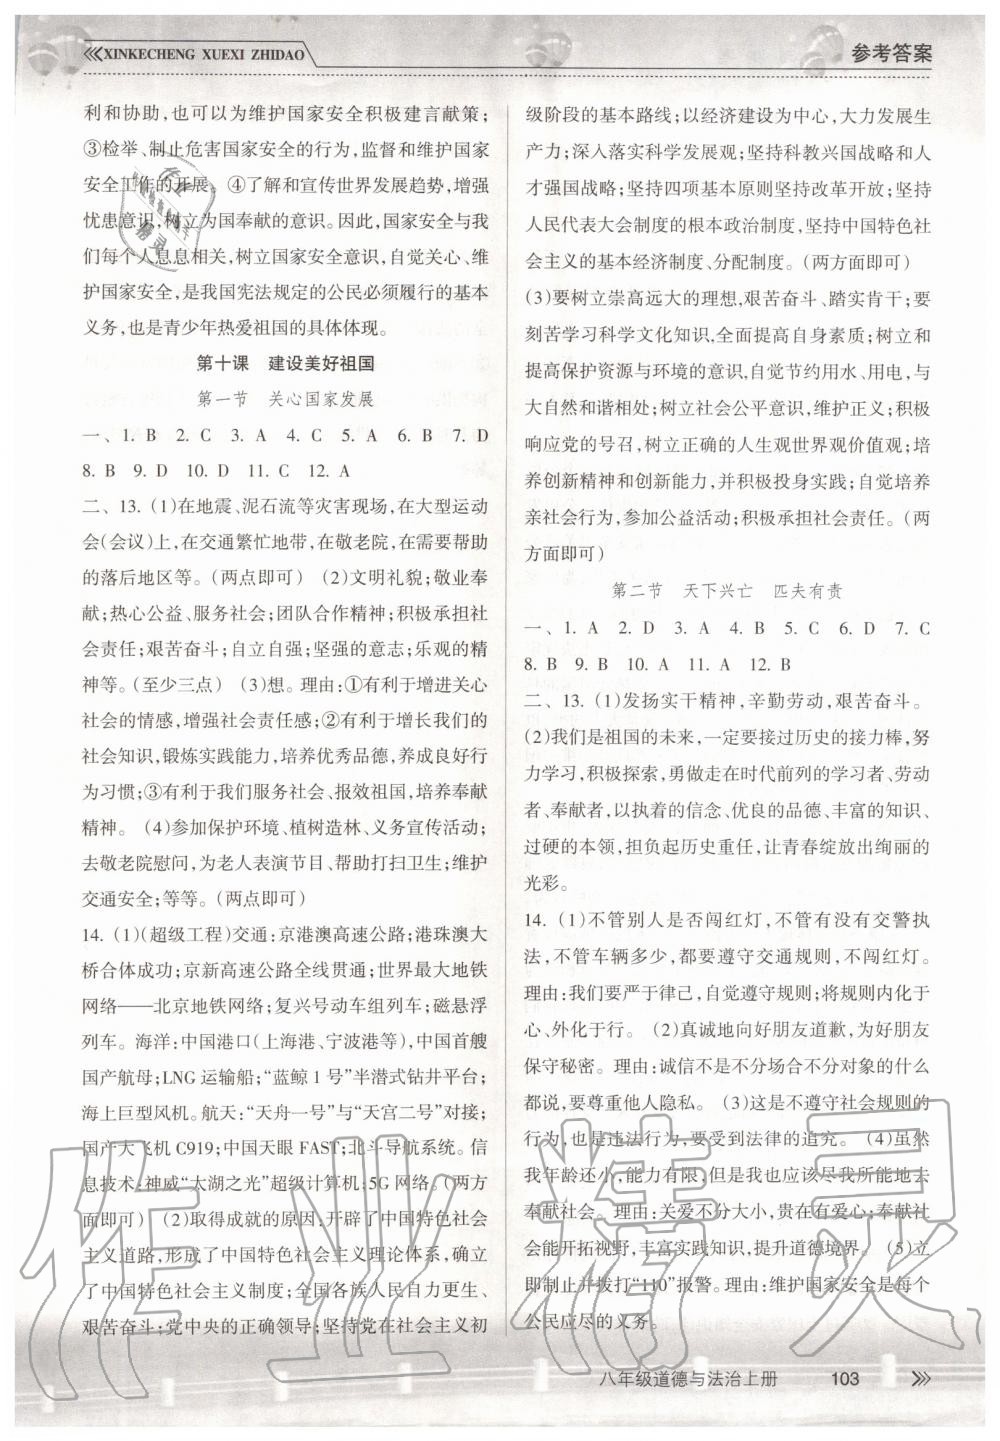 XINKECHENG XUEXI ZHIDAO
参考答案
利和协助,也可以为维护国家安全积极建言献策;
③检举、制止危害国家安全的行为,监督和维护国家
安全工作的开展。④了解和宣传世界发展趋势,增强
忧患意识,树立为国奉献的意识。因此,国家安全与我
们每个人息息相关,树立国家安全意识,自觉关心、维
护国家安全,是我国宪法规定的公民必须履行的基本
义务,也是青少年热爱祖国的具体体现。
第十课 建设美好祖国
第一节 关心国家发展
一、1. B 2. C 3. A 4. C 5. A 6. B 7. D
8. B 9. D 10. D 11. C 12. A
二、13. (1)在地震、泥石流等灾害现场,在大型运动
会(会议)上,在交通繁忙地带,在敬老院,在需要帮助
的落后地区等。(两点即可) (2)文明礼貌;敬业奉
献;热心公益、服务社会;团队合作精神;积极承担社
会责任;艰苦奋斗;自立自强;坚强的意志;乐观的精
神等。(至少三点) (3)想。理由:①有利于增进关心
社会的情感,增强社会责任感;②有利于增长我们的
社会知识,锻炼实践能力,培养优秀品德,养成良好行
为习惯;③有利于我们服务社会、报效祖国,培养奉献
精神。 (4)参加保护环境、植树造林、义务宣传活动;
去敬老院慰问,为老人表演节目、帮助打扫卫生;维护
交通安全;等等。(两点即可)
14. (1)(超级工程)交通:京港澳高速公路;港珠澳大
桥合体成功;京新高速公路全线贯通;世界最大地铁
网络——北京地铁网络;复兴号动车组列车;磁悬浮
列车。海洋:中国港口(上海港、宁波港等),中国首艘
国产航母;LNG 运输船;“蓝鲸 1 号”半潜式钻井平台;
海上巨型风机。航天:“天舟一号”与“天宫二号”对接;
国产大飞机 C919;中国天眼 FAST;北斗导航系统。信
息技术:神威“太湖之光”超级计算机;5G 网络。(两方
面即可) (2)取得成就的原因:开辟了中国特色社会
主义道路,形成了中国特色社会主义理论体系,确立了
中国特色社会主义制度;全国各族人民自力更生、
艰苦奋斗;党中央的正确领导;坚持党在社会主义初
级阶段的基本路线;以经济建设为中心,大力发展生
产力;深入落实科学发展观;坚持科教兴国战略和人
才强国战略;坚持四项基本原则坚持改革开放;坚持
人民代表大会制度的根本政治制度,坚持中国特色社
会主义的基本经济制度、分配制度。(两方面即可)
(3)要树立崇高远大的理想,艰苦奋斗、踏实肯干;要
刻苦学习科学文化知识,全面提高自身素质;树立和
提高保护资源与环境的意识,自觉节约用水、用电,与
大自然和谐相处;树立社会公平意识,维护正义;积极
响应党的号召,树立正确的人生观世界观价值观;培
养创新精神和创新能力,并积极投身实践;自觉培养
亲社会行为,参加公益活动;积极承担社会责任。(两
方面即可)
第二节 天下兴亡 匹夫有责
一、1. A 2. D 3. A 4. B 5. C 6. D 7. C
8. B 9. B 10. A 11. A 12. B
二、13. (1)发扬实干精神,辛勤劳动,艰苦奋斗。
(2)我们是祖国的未来,一定要接过历史的接力棒,努
力学习,积极探索,勇做走在时代前列的学习者、劳动
者、奉献者,以执着的信念、优良的品德、丰富的知识、
过硬的本领,担负起历史重任,让青春绽放出绚丽的
光彩。
14. (1)不管别人是否闯红灯,不管有没有交警执
法,不管车辆多少,都要遵守交通规则,不闯红灯。
理由:我们要严于律己,自觉遵守规则;将规则内化于
心、外化于行。 (2)真诚地向好朋友道歉,为好朋友
保守秘密。理由:诚信不是不分场合不分对象的什么
都说,要尊重他人隐私。 (3)这是不遵守社会规则的
行为,也是违法行为,要受到法律的追究。 (4)虽然
我年龄还小,能力有限,但是我也应该尽我所能地去
奉献社会。理由:关爱不分大小,贵在有爱心;奉献社
会能开拓视野,丰富实践知识,提升道德境界。 (5)立
即制止并拨打“110”报警。理由:维护国家安全是每个
公民应尽的义务。
八年级道德与法治上册 103
作业精灵